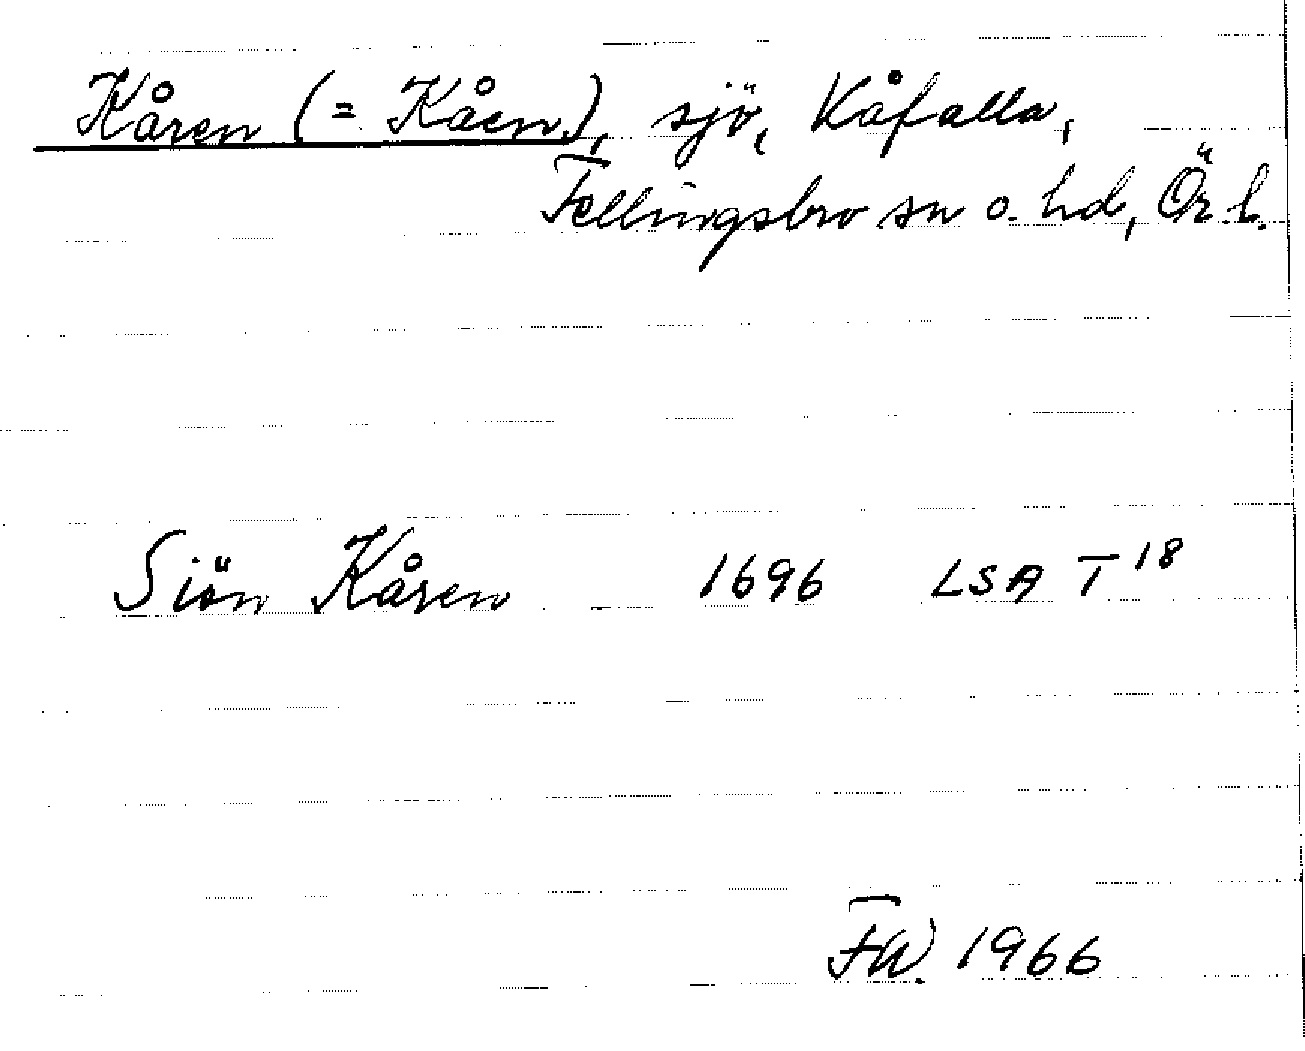 Kåren (= Kåen), sjö, Kåfalla,
Fellingsbro sn o. hd, Ör. l.
Siön Kåren 1696 LSA T 18
FW. 1966